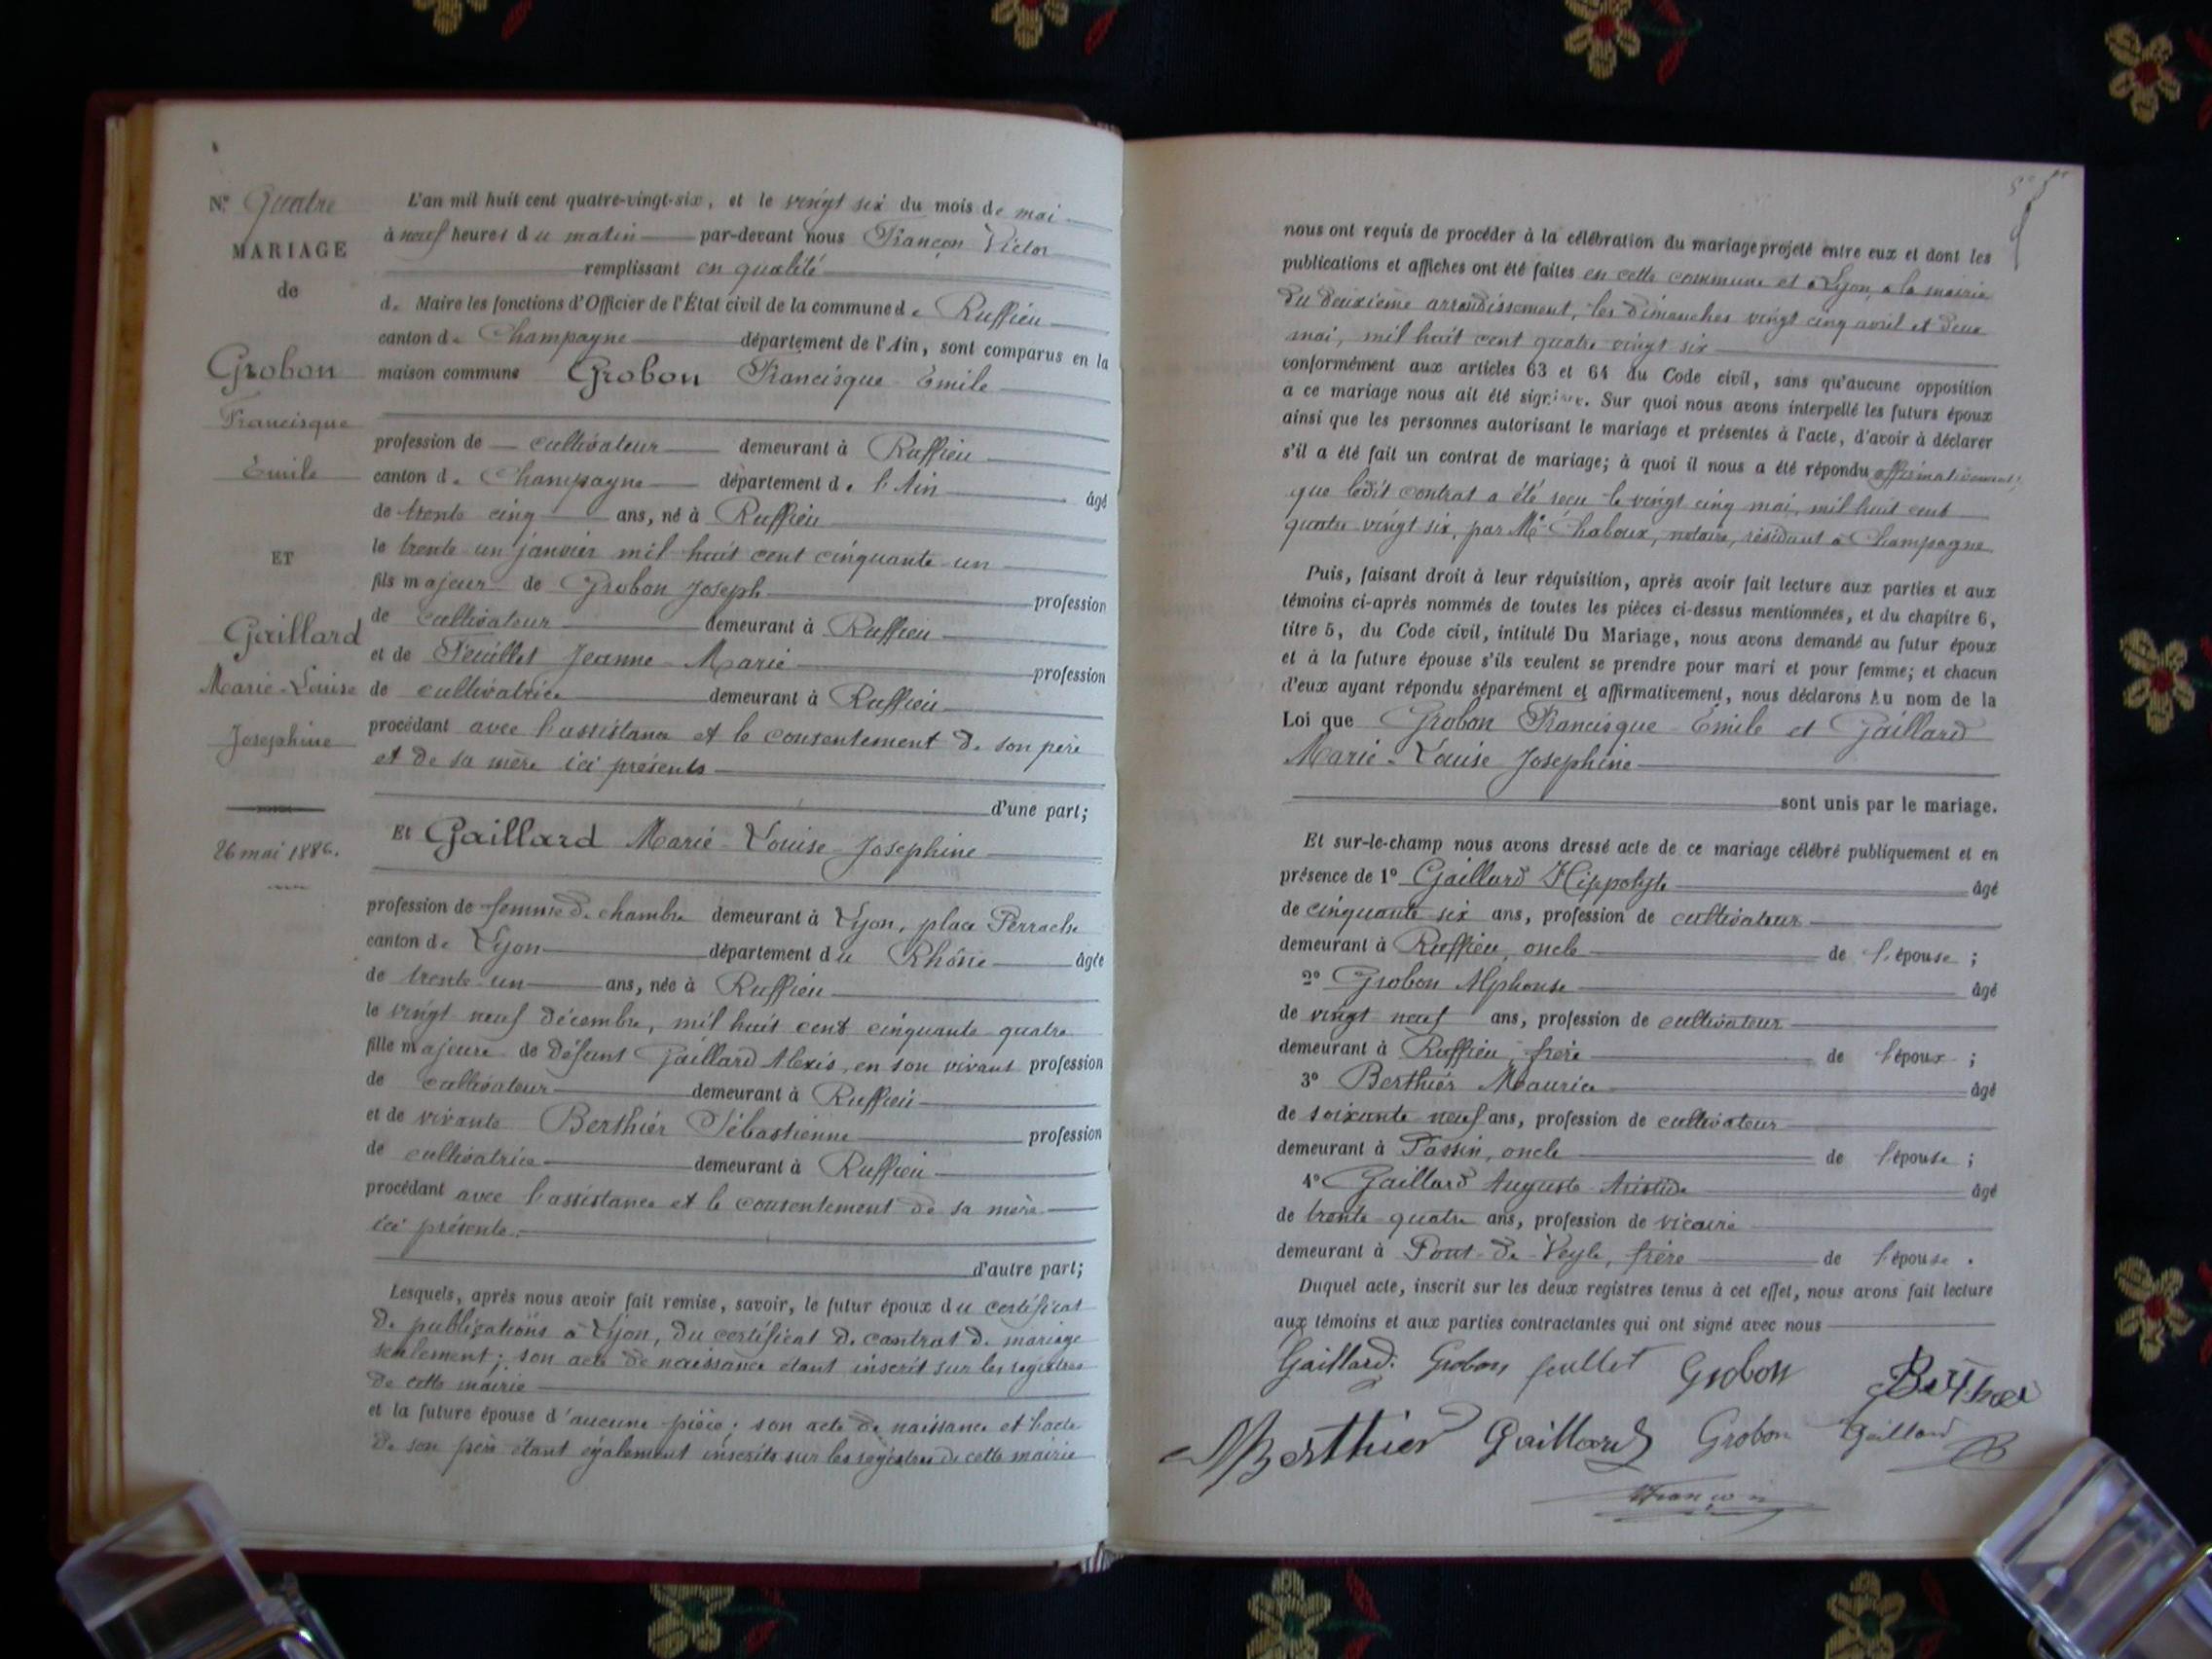 N° Quatre
MARIAGE
de
Grobon
Francisque
Emile
ET
Gaillard
Marie-Louise
Josephine
26 mai 1886.
L'an mil huit cent quatre-vingt-six, et le vingt six du mois de mai
à neuf heures du matin par-devant nous Françon Victor
remplissant en qualité
de Maire les fonctions d'Officier de l'État civil de la commune de Ruffieu
canton de Champagne département de l'Ain, sont comparus en la
maison commune Grobon Francisque Emile
profession de cultivateur demeurant à Ruffieu
canton de Champagne département de l'Ain âgé
de trente cinq ans, né à Ruffieu
le trente un janvier mil huit cent cinquante un
fils majeur de Grobon Joseph profession
de cultivateur demeurant à Ruffieu
et de Feuillet Jeanne-Marie profession
de cultivatrice demeurant à Ruffieu
procédant avec l'assistance et le consentement de son père
et de sa mère ici présents
d'une part;
Et Gaillard Marie-Louise-Josephine
profession de femme de chambre demeurant à Lyon, place Perrache
canton de Lyon département du Rhône âgée
de trente un ans, née à Ruffieu
le vingt neuf décembre, mil huit cent cinquante quatre
fille majeure de défunt Gaillard Alexis, en son vivant profession
de cultivateur demeurant à Ruffieu
et de vivante Berthier Sébastienne profession
de cultivatrice demeurant à Ruffieu
procédant avec l'assistance et le consentement de sa mère
ici présente.
d'autre part;
Lesquels, après nous avoir fait remise, savoir, le futur époux du certificat
de publications à Lyon, du certificat de contrat de mariage
seulement; son acte de naissance étant inscrit sur les registres
de cette mairie
et la future épouse d'aucune pièce; son acte de naissance et l'acte
de son père étant également inscrits sur les registres de cette mairie
nous ont requis de procéder à la célébration du mariage projeté entre eux et dont les
publications et affiches ont été faites en cette commune et à Lyon, à la mairie
du deuxième arrondissement, les dimanches vingt cinq avril et deux
mai, mil huit cent quatre vingt six
conformément aux articles 63 et 64 du Code civil, sans qu'aucune opposition
à ce mariage nous ait été signifiée. Sur quoi nous avons interpellé les futurs époux
ainsi que les personnes autorisant le mariage et présentes à l'acte, d'avoir à déclarer
s'il a été fait un contrat de mariage; à quoi il nous a été répondu affirmativement,
que ledit contrat a été reçu le vingt cinq mai, mil huit cent
quatre vingt six, par Me Chaboux, notaire, résidant à Champagne
Puis, faisant droit à leur réquisition, après avoir fait lecture aux parties et aux
témoins ci-après nommés de toutes les pièces ci-dessus mentionnées, et du chapitre 6,
titre 5, du Code civil, intitulé Du Mariage, nous avons demandé au futur époux
et à la future épouse s'ils veulent se prendre pour mari et pour femme; et chacun
d'eux ayant répondu séparément et affirmativement, nous déclarons Au nom de la
Loi que Grobon Francisque Emile et Gaillard
Marie-Louise Josephine
sont unis par le mariage.
Et sur-le-champ nous avons dressé acte de ce mariage célébré publiquement et en
présence de 1° Gaillard Hippolyte âgé
de cinquante six ans, profession de cultivateur
demeurant à Ruffieu, oncle de l'épouse ;
2° Grobon Alphonse âgé
de vingt neuf ans, profession de cultivateur
demeurant à Ruffieu, frère de l'époux ;
3° Berthier Maurice âgé
de soixante neuf ans, profession de cultivateur
demeurant à Passin, oncle de l'épouse ;
4° Gaillard Auguste Aristide âgé
de trente quatre ans, profession de vicaire
demeurant à Pont-de-Veyle, frère de l'épouse .
Duquel acte, inscrit sur les deux registres tenus à cet effet, nous avons fait lecture
aux témoins et aux parties contractantes qui ont signé avec nous
Gaillard. Grobon feuillet Grobon Berthier
MBerthier Gaillard Grobon Gaillard
Françon